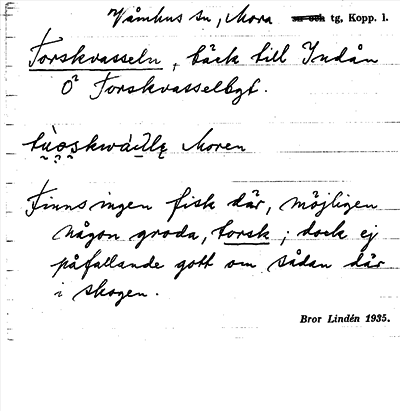 Våmhus sn, Mora sn och tg, Kopp. l.
Torskvasseln, bäck till Indån
O² Torskvasselbgt.
Moren
Finns ingen fisk där, möjligen
någon groda, torsk; dock ej
påfallande gott om sådan där
i skogen.
Bror Lindén 1935.